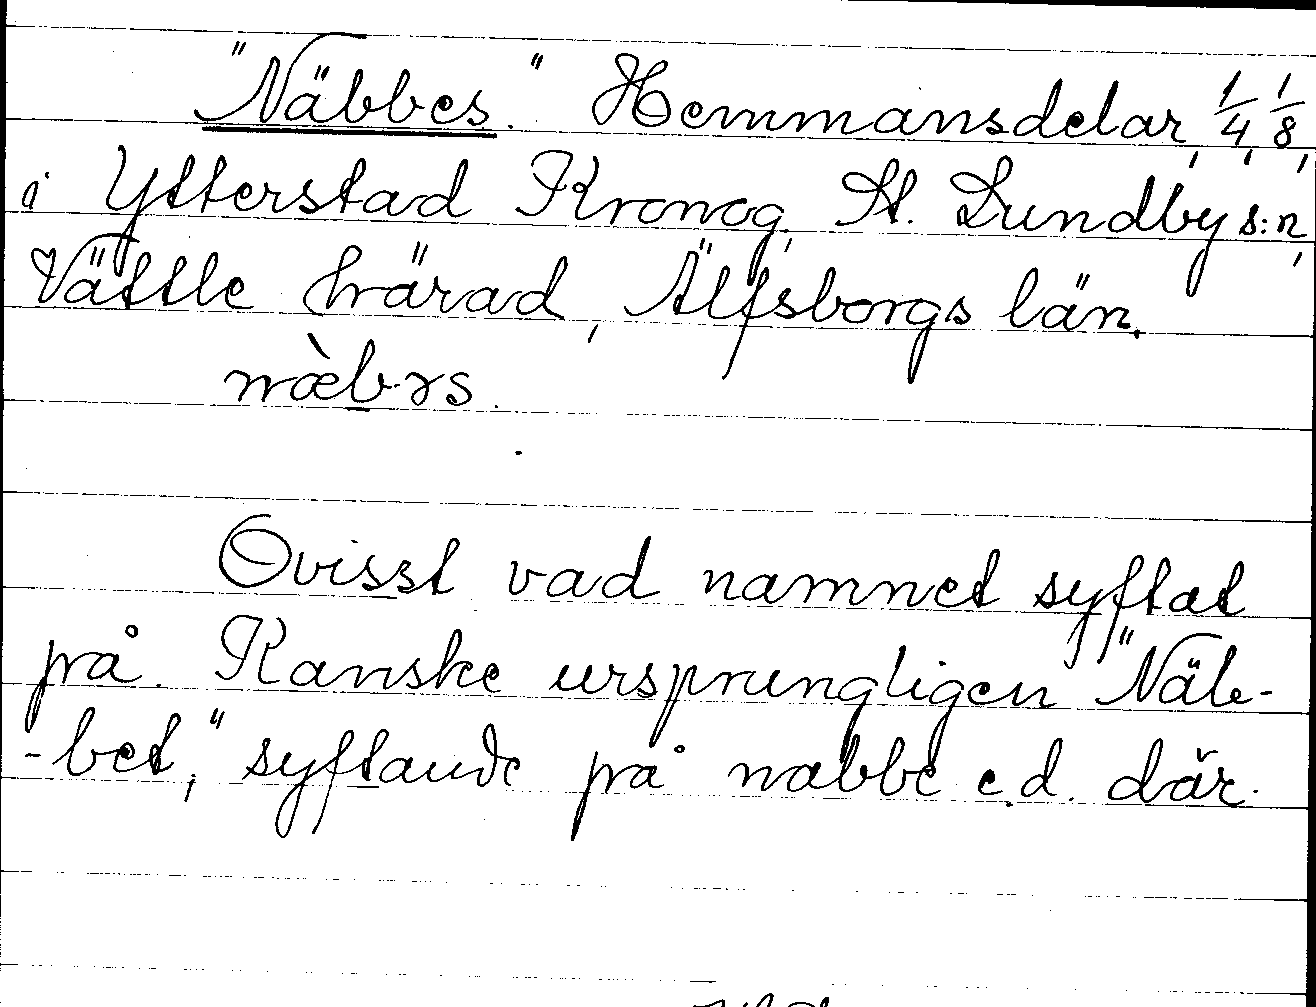 "Näbbes." Hemmansdelar, 1/4, 1/8,
i Ytterstad Kronog. St. Lundby s:n,
Vättle härad, Älfsborgs län.
næ̀b·ɤs.
Ovisst vad namnet syftat
på. Kanske ursprungligen "Näb-
-bet," syftande på nabbe e.d. där.